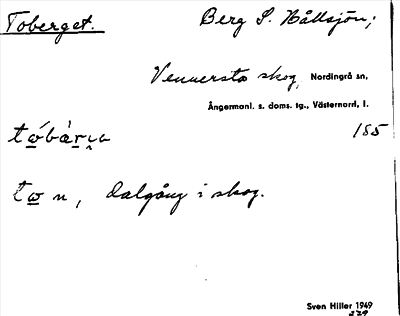 Toberget. Berg S. Hållsjön;
Vennersta skog, Nordingrå sn,
Ångermanl. s. doms. tg., Västernord. l.
185
tω n, dalgång i skog.
Sven Hiller 1949